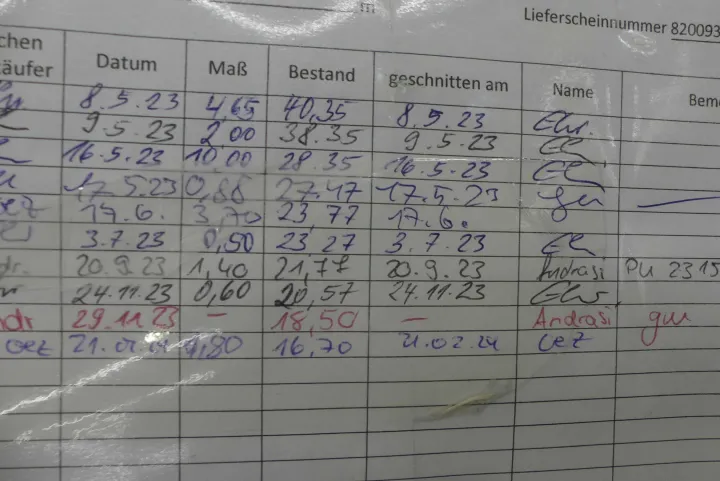 m
Lieferscheinnummer 820093
chen
äufer Datum Maß Bestand geschnitten am Name Beme
8.5.23 4,65 40,35 8.5.23
9.5.23 2,00 38.35 9.5.23
16.5.23 10,00 28.35 16.5.23
17.5.23 0,88 27.47 17.5.23
17.6. 3,70 23,77 17.6.
3.7.23 0,50 23,27 3.7.23
dr. 20.9.23 1,40 21,77 20.9.23 Andrasi PU 2315
24.11.23 0,60 20,57 24.11.23
ndr 29.11.23 – 18,50 – Andrasi
oez 21.02.24 1,80 16,70 21.02.24 oez